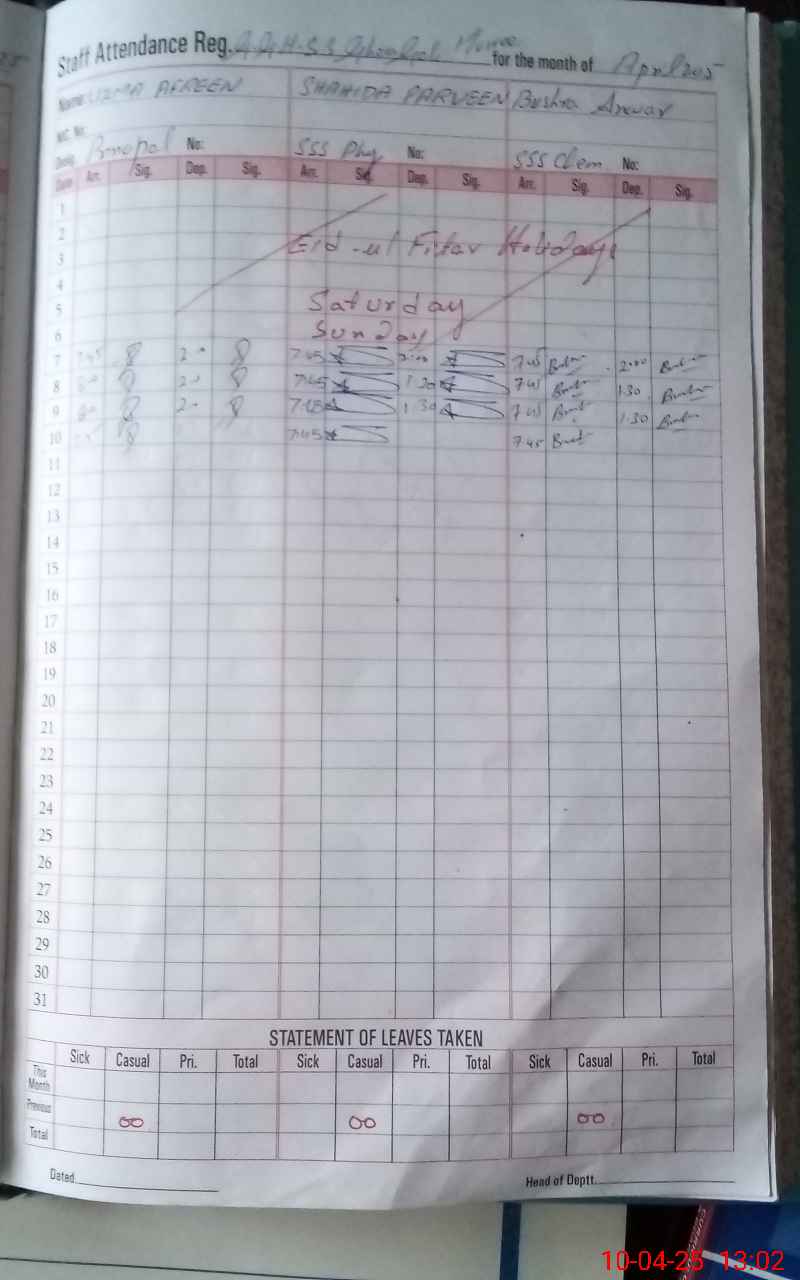 Staff Attendance Reg. for the month of April 2025
Name: UZMA AFREEN SHAHIDA PARVEEN Bushra Anwar
NIC No:
Desig. No: SSS Phy No: SSS Chem No:
Date Arr. Sig. Dep. Sig. Arr. Sig. Dep. Sig. Arr. Sig. Dep. Sig.
1
2 Eid-ul Fitar Holidays
3
4
5 Saturday
6 Sunday
7 7.45 2.00 7:45 2:00 7.45 2.00
8 7:45 1.30 7.45 1.30
9 7:45 1.30 7.45 1.30
10 7:45 7.45
11
12
13
14
15
16
17
18
19
20
21
22
23
24
25
26
27
28
29
30
31
STATEMENT OF LEAVES TAKEN
Sick Casual Pri. Total Sick Casual Pri. Total Sick Casual Pri. Total
This Month
Previous 00 00 00
Total
Dated Head of Deptt.
10-04-25 13:02